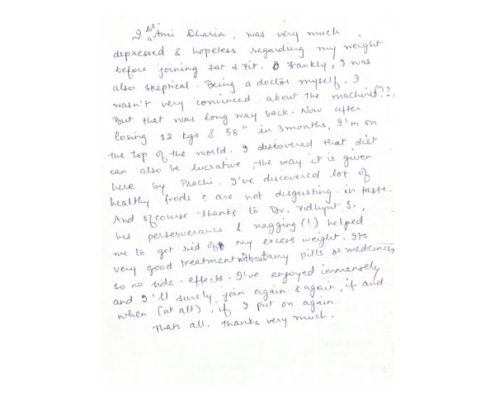 I Dr. Ami Dharia, was very much
depressed & hopeless regarding my weight
before joining Fat 2 Fit. Frankly, I was
also skeptical. Being a doctor myself. I
wasn't very convinced about the machines??.
But that was long way back. Now after
losing 12 kgs & 58" in 3 months, I'm on
the top of the world. I discovered that diet
can also be lucrative the way it is given
here by Prachi. I've discovered lot of
healthy foods c are not disgusting in taste.
And ofcourse thanks to Dr. Vidhyut S.,
his perseverance & nagging (!) helped
me to get rid of my excess weight. Its
very good treatment without any pills or medicines
so no side-effects. I've enjoyed immensely
and I'll surely join again & again, if and
when (at all), if I put on again.
Thats all. Thanks very much.